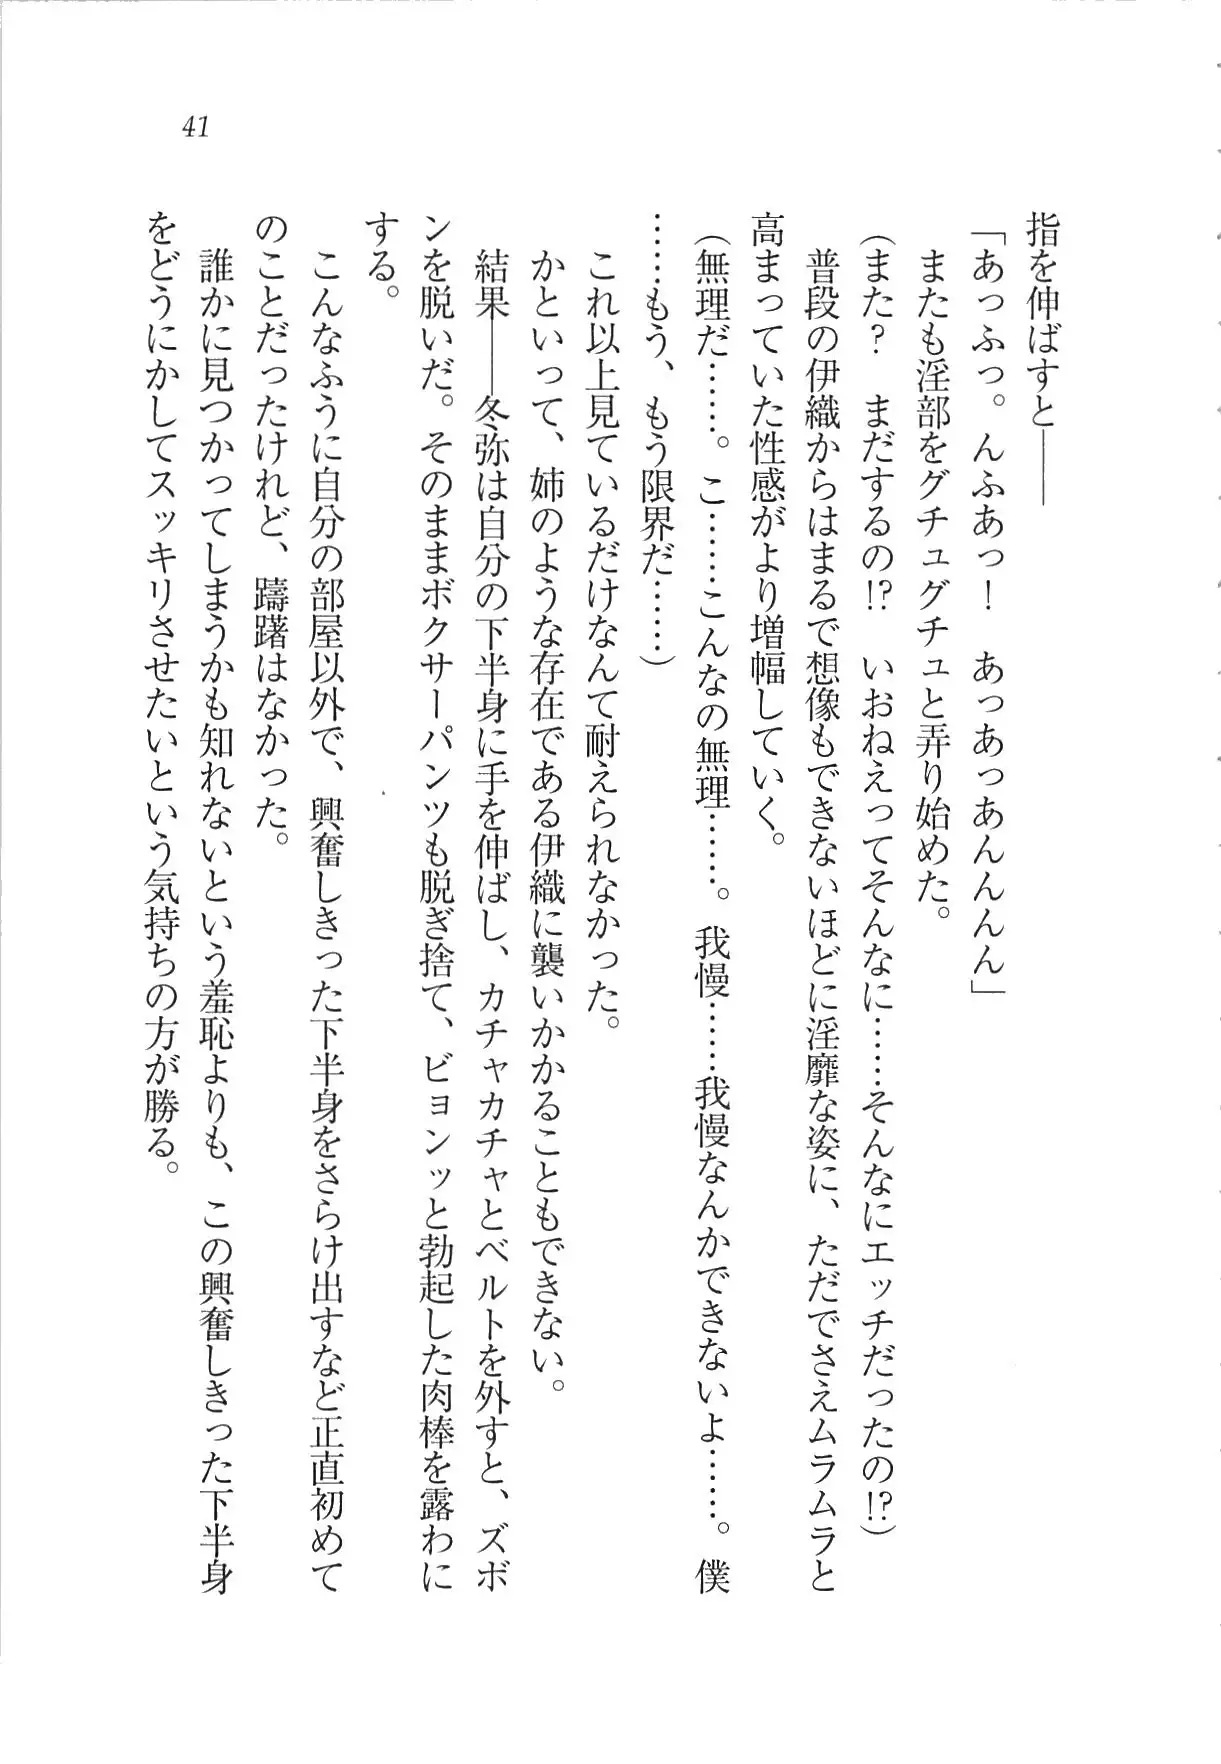 41
指を伸ばすと――
「あっふっ。んふあっ！　あっあっあんんんん」
またも淫部をグチュグチュと弄り始めた。
（また？　まだするの!?　いおねえってそんなに……そんなにエッチだったの!?）
普段の伊織からはまるで想像もできないほどに淫靡な姿に、ただでさえムラムラと
高まっていた性感がより増幅していく。
（無理だ……。こ……こんなの無理……。我慢……我慢なんかできないよ……。僕
……もう、もう限界だ……）
これ以上見ているだけなんて耐えられなかった。
かといって、姉のような存在である伊織に襲いかかることもできない。
結果――冬弥は自分の下半身に手を伸ばし、カチャカチャとベルトを外すと、ズボ
ンを脱いだ。そのままボクサーパンツも脱ぎ捨て、ビョンッと勃起した肉棒を露わに
する。
こんなふうに自分の部屋以外で、興奮しきった下半身をさらけ出すなど正直初めて
のことだったけれど、躊躇はなかった。
誰かに見つかってしまうかも知れないという羞恥よりも、この興奮しきった下半身
をどうにかしてスッキリさせたいという気持ちの方が勝る。